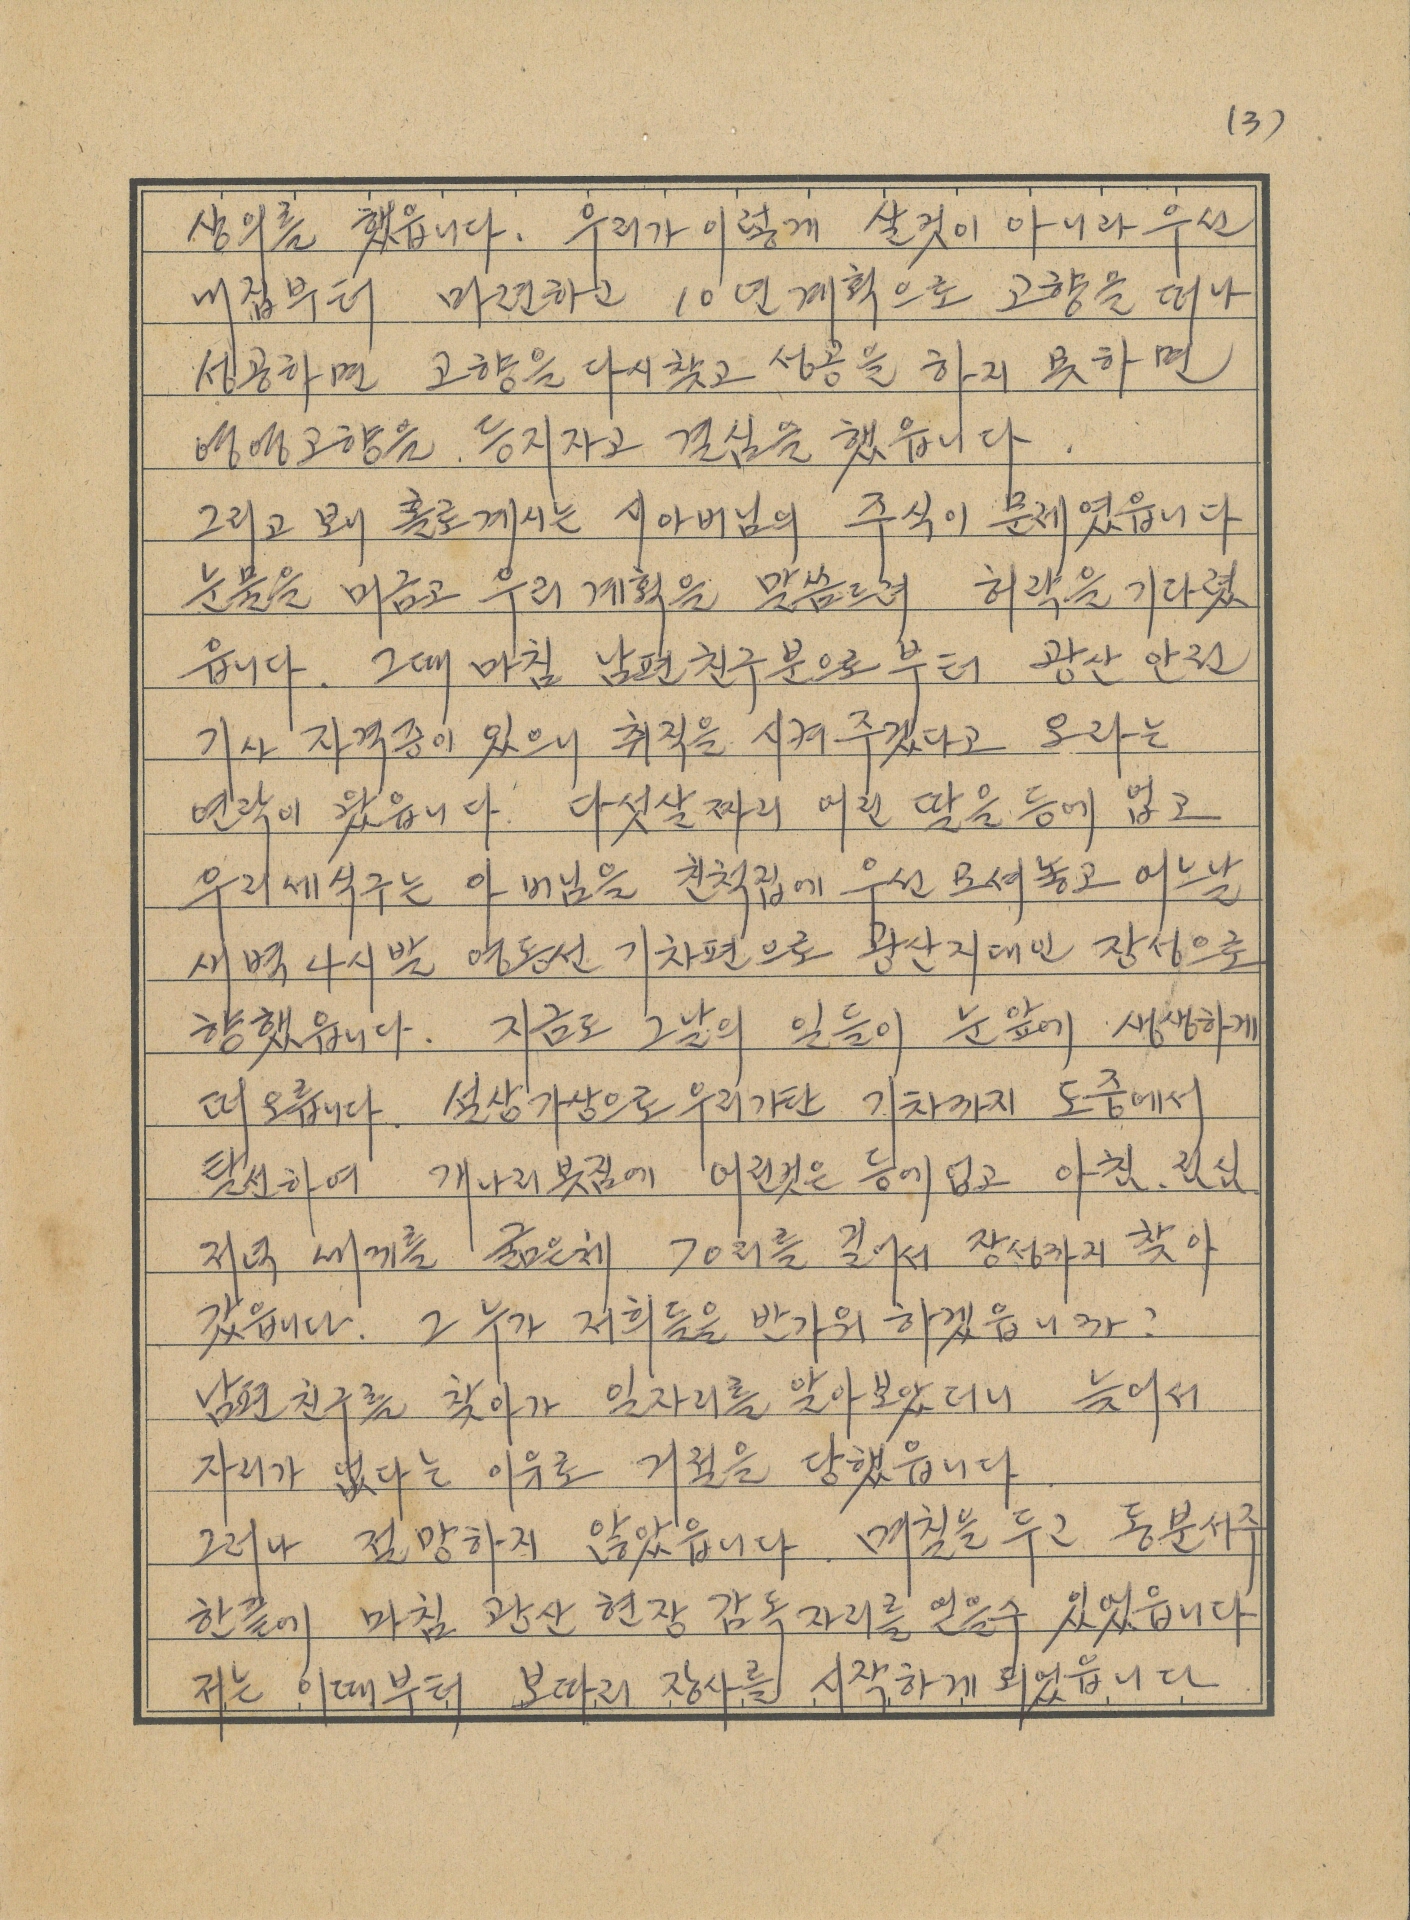 (3)
상의를 했읍니다. 우리가 이렇게 살것이 아니라 우선
내집부터 마련하고 10년계획으로 고향을 떠나
성공하면 고향을 다시찾고 성공을 하지 못하면
영영고향을 등지자고 결심을 했읍니다.
그리고 보니 홀로계시는 시아버님의 주식이 문제였읍니다
눈물을 머금고 우리 계획을 말씀드려 허락을 기다렸
읍니다. 그때 마침 남편친구분으로부터 광산 안전
기사 자격증이 있으니 취직을 시켜주겠다고 오라는
연락이 왔읍니다. 다섯살짜리 어린 딸을 등에 업고
우리세식구는 아버님을 친척집에 우선 모셔놓고 어느날
새벽 4시발 영동선 기차편으로 광산지대인 장성으로
향했읍니다. 지금도 그날의 일들이 눈앞에 생생하게
떠오릅니다. 설상가상으로 우리가탄 기차까지 도중에서
탈선하여 개나리봇짐에 어린것은 등에업고 아침, 점심
저녁 세끼를 굶은체 70리를 걸어서 장성까지 찾아
갔읍니다. 그 누가 저희들을 반가워 하겠읍니까?
남편친구를 찾아가 일자리를 알아보았더니 늦어서
자리가 없다는 이유로 거절을 당했읍니다.
그러나 절망하지 않았읍니다. 몇칠을 두고 동분서주
한끝에 마침 광산 현장 감독자리를 얻을수 있었읍니다
저는 이때부터 보따리 장사를 시작하게 되었읍니다